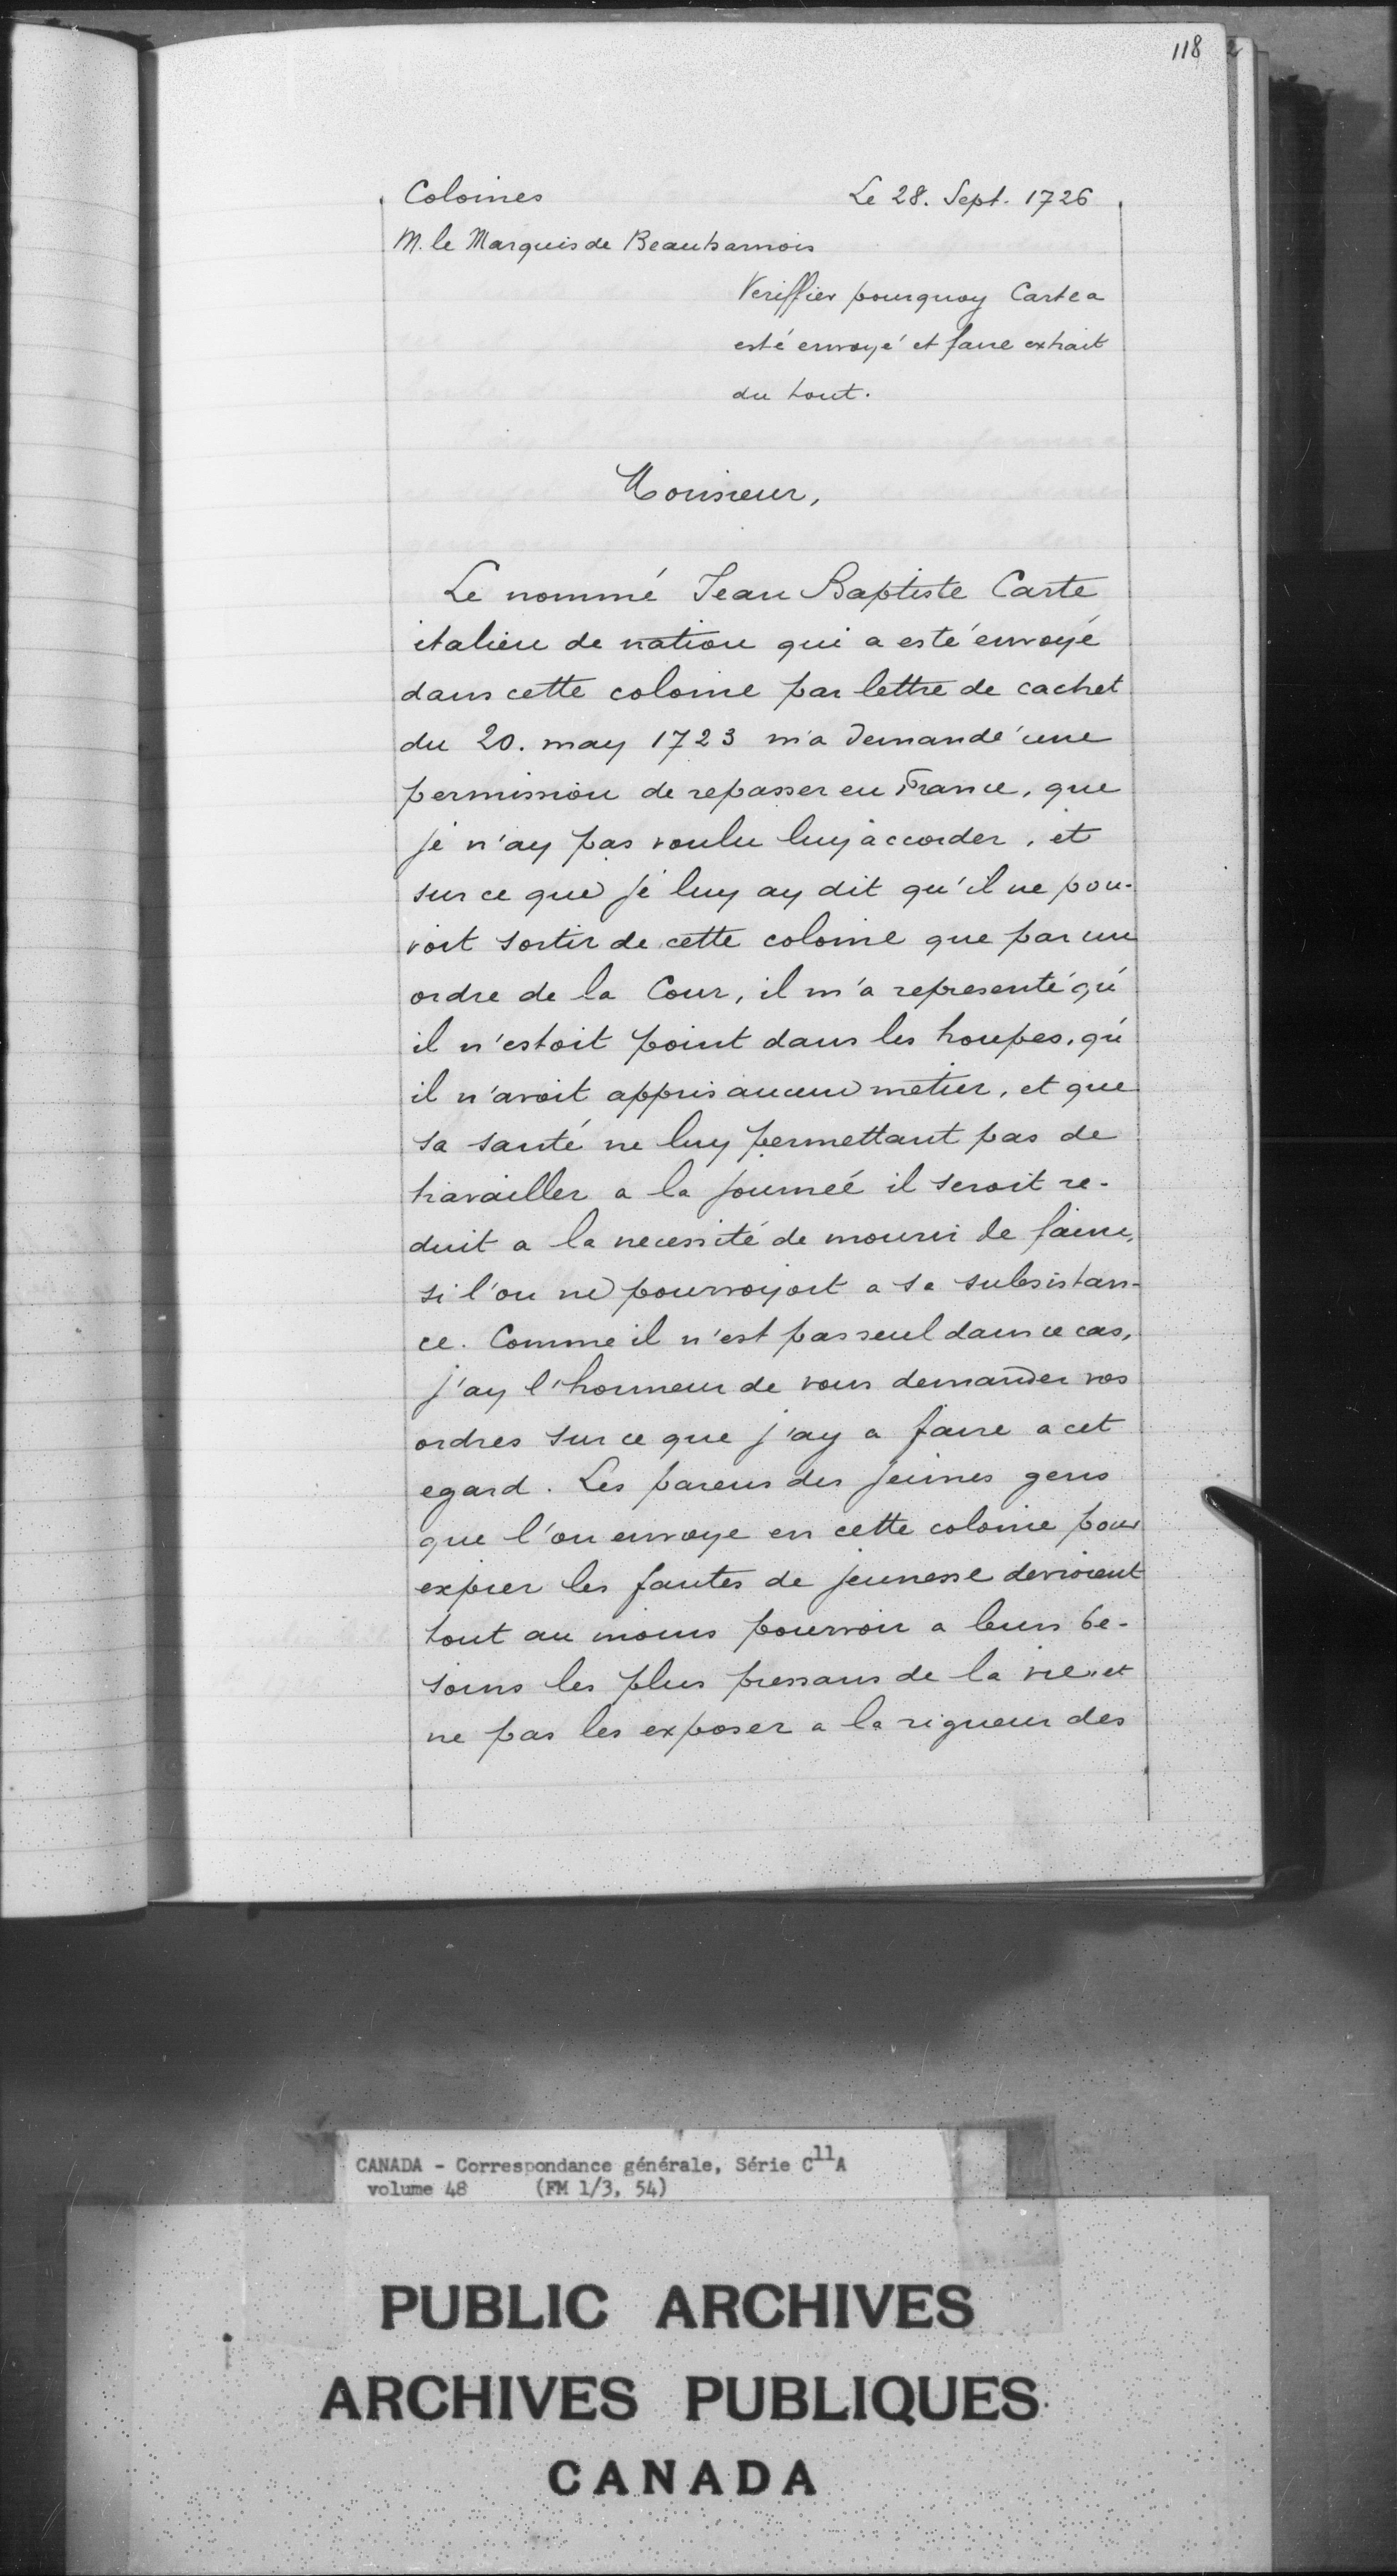 118
2
Colonies Le 28. Sept. 1726
M. le Marquis de Beauharnois
Veriffier pourquoy Carte a
esté envoyé et faire extrait
du tout.
Monsieur,
Le nommé Jean Baptiste Carte
italien de nation qui a esté envoyé
dans cette colonie par lettre de cachet
du 20. may 1723 m'a demandé une
permission de repasser en France, que
je n'ay pas voulu luy accorder, et
sur ce que je luy ay dit qu'il ne pou-
voit sortir de cette colonie que par un
ordre de la Cour, il m'a representé qu'
il n'estoit point dans les troupes, qu'
il n'avoit appris aucun metier, et que
sa santé ne luy permettant pas de
travailler a la journeé il seroit re-
duit a la necessité de mourir de faim,
si l'on ne pourvoyoit a sa subsistan-
ce. Comme il n'est pas seul dans ce cas,
j'ay l'honneur de vous demander vos
ordres sur ce que j'ay a faire a cet
egard. Les parens des jeunes gens
que l'on envoye en cette colonie pour
expier les fautes de jeunesse devroient
tout au moins pourvoir a leurs be-
soins les plus pressans de la vie, et
ne pas les exposer a la rigueur des
CANADA - Correspondance générale, Série C11A
volume 48 (FM 1/3, 54)
PUBLIC ARCHIVES
ARCHIVES PUBLIQUES
CANADA